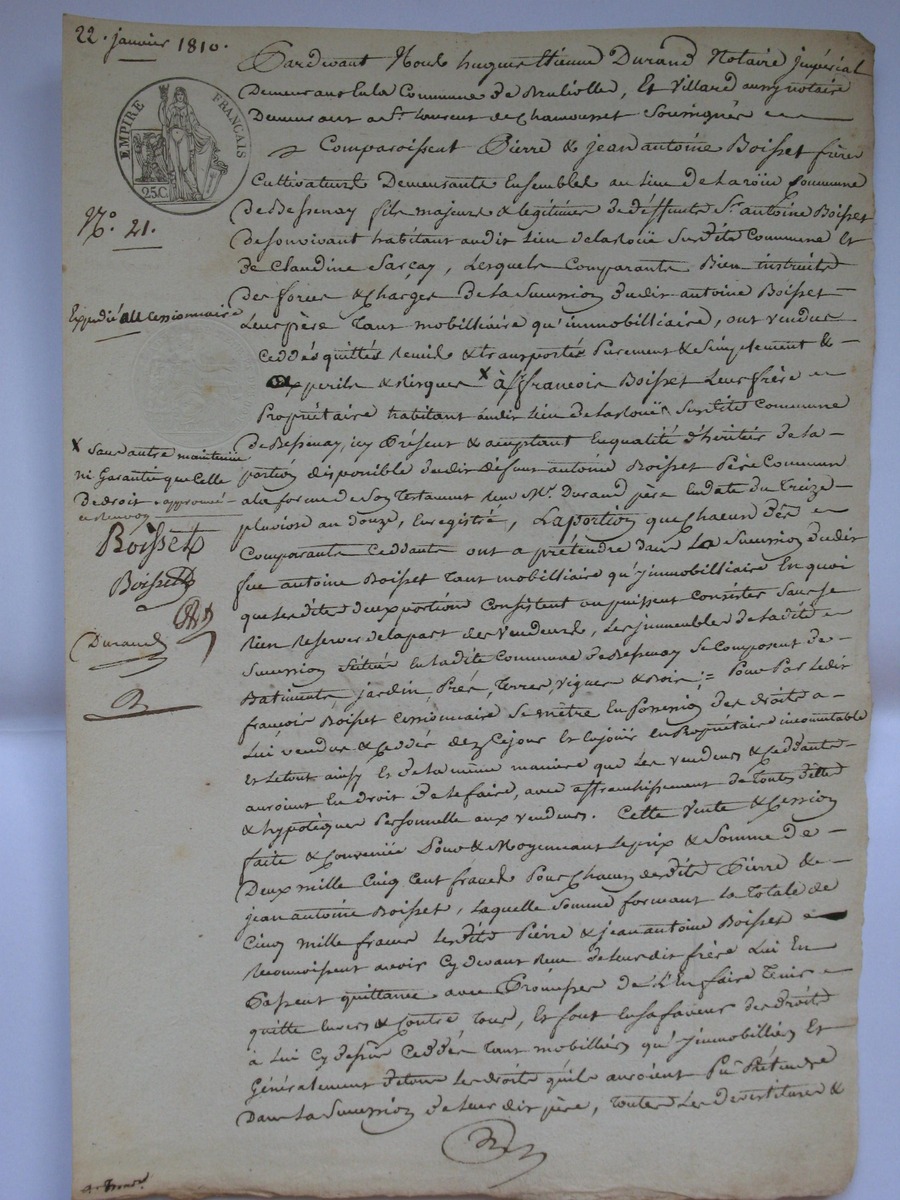 22. janvier 1810.
EMPIRE FRANÇAIS
25.C.
N.º 21.
Expédié au Cessionnaire
Pardevant Nous hugues Etienne Durand Notaire jmpérial
Demeurant En la Commune de Brullioles, Et Villard aussy notaire
Demeurant a St. Laurent de Chamousset Soussignés
Comparoissent Pierre & jean antoine Boisset frères
Cultivateurs Demeurants Ensembles au Lieu de Laroüe Commune
de Bessenay fils majeurs & legitimes de déffunts Sr. antoine Boisset
de son vivant habitant audit Lieu de laRoüe Susdite Commune Et
de Claudine Sarçay, Lesquels Comparants Bien instruits
des forces & Charges de La Succession dudit antoine Boisset
Leur père Tant mobilliaire qu'immobilliaire, ont vendus
Ceddés quittés Remis & transportés Purement & Simplement &
a perils & Risques x à Sr. françois Boisset Leur frère
Propriétaire habitant audit Lieu de LaRoüe Susdite Commune
de Bessenay, icy Présent & acceptant En qualité d'héritier de La
portion disponible dudit défunt antoine Boisset Père Commun
a la forme de Son Testament Reçu Me. Durand père En date du Treize
pluviose an douze, Enregistré, La portion que Chacun des
Comparants Ceddants ont a prétendre dans La Succession dudit
feu antoine Boisset Tant mobilliaire qu'jmmobilliaire En quoi
que Lesdites deux portions Consistent ou puissent Consister Sans se
Rien Reserver de la part des Vendeurs, Les jmmeubles de Ladite
Succession Situés En Ladite Commune de Bessenay Se Composent de
Batiments, jardin, Prés, Terres, Vignes & Bois ;= Pour Par Ledit
françois Boisset Cessionnaire Se mètre En possession des droits a
Lui vendus & Ceddés dez Cejour Et En jouir En Propriétaire incommutable
Et Letout ainsy Et de la même manière que Les vendeurs & Ceddants
auroient En droit de le faire, avec affranchissement de Toutes dettes
& hypotèques Personnelle aux vendeurs. Cette Vente & Cession
faite & Convenüe Pour & Moyennant Le prix & Somme de
Deux mille Cinq Cent francs Pour Chacun desdits Pierre &
jean antoine Boisset, Laquelle Somme formant La Totale de
Cinq mille francs Lesdits Pierre & jean antoine Boisset
Reconnoissent avoir Cy devant Reçu de Leur dit frère Lui En
Passent quittance avec Promesse de L'En faire Tenir
quitte Envers & Contre Tous, Et font En sa faveur des droits
à Lui Cy dessus Ceddés Tant mobilliers qu'jmmobilliers Et
Généralement de tous Les droits qu'ils auroient Pü Prétendre
Dans La Succession de Leur dit père, Toutes Les devestitures &
x Sans autre maintenüe
ni Garantie que Celle
De droit. approuvé
ce Renvoy
Boisset
Boisset
Durand